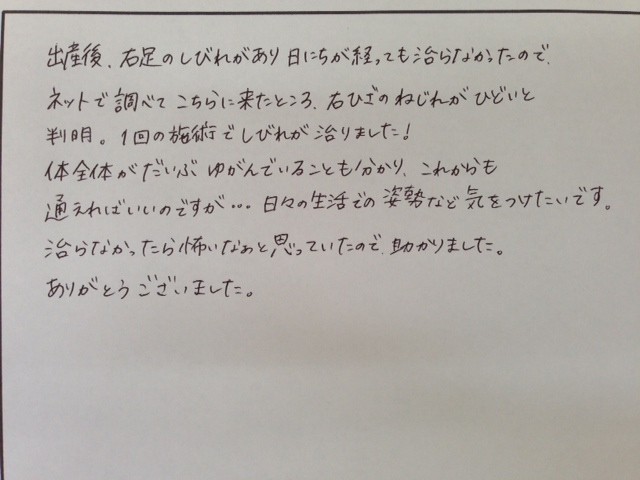 出産後、右足のしびれがあり日にちが経っても治らなかったので、
ネットで調べてこちらに来たところ、右ひざのねじれがひどいと
判明。1回の施術でしびれが治りました！
体全体がだいぶゆがんでいることも分かり、これからも
通えればいいのですが…日々の生活での姿勢など気をつけたいです。
治らなかったら怖いなぁと思っていたので、助かりました。
ありがとうございました。